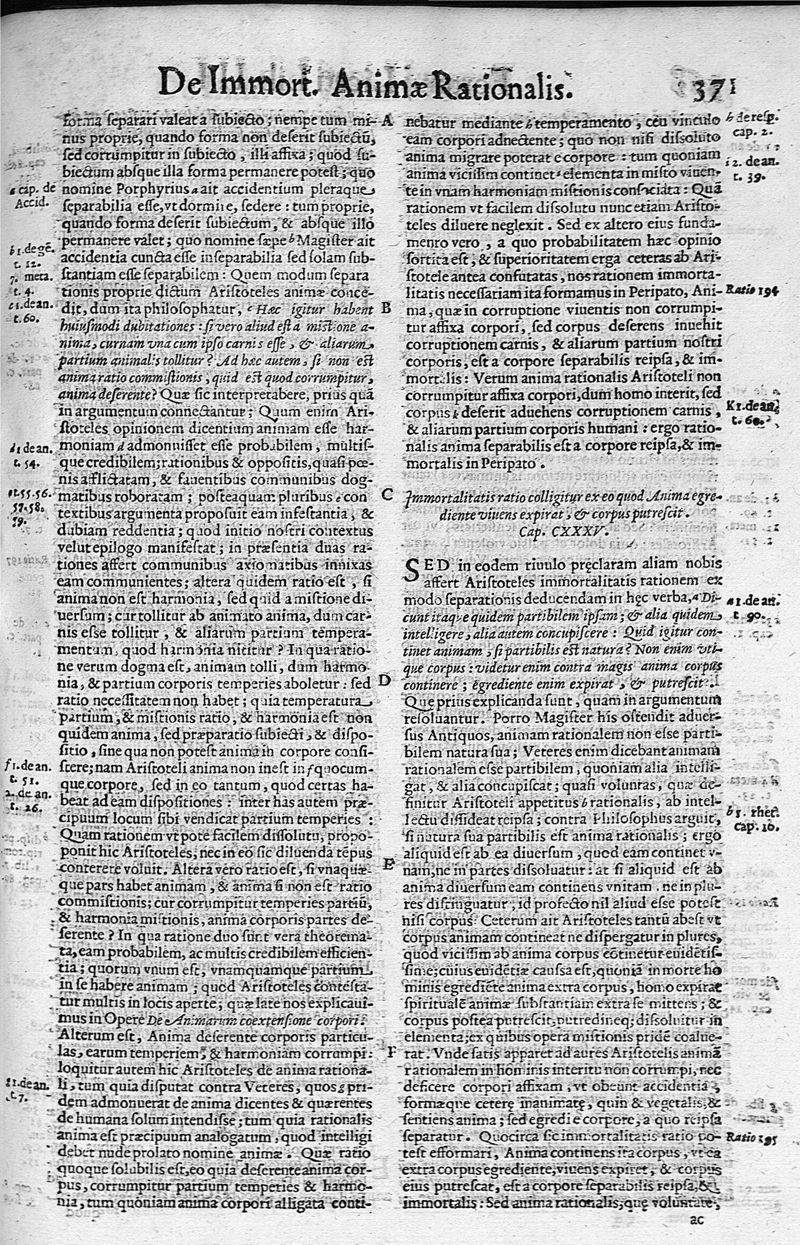 De Immort. Animæ Rationalis. 371
forma separari valeat a subiecto; nempe tum mi-
nus proprie, quando forma non deserit subiectũ,
sed corrumpitur in subiecto, illi affixa; quod su-
biectum absque illa forma permanere potest; quo
nomine Porphyrius a ait accidentium pleraque
separabilia esse, vt dormire, sedere: tum proprie,
quando forma deserit subiectum, & absque illo
permanere valet; quo nomine sæpe b Magister ait
accidentia cuncta esse inseparabilia sed solam sub-
stantiam esse separabilem: Quem modum separa
tionis proprie dictum Aristoteles animæ conce-
dit, dum ita philosophatur, c Hæc igitur habent
huiusmodi dubitationes: si vero aliud est a mistione a-
nima, curnam vna cum ipso carnis esse, & aliarum
partium animalis tollitur? Ad hæc autem, si non est
anima ratio commistionis, quid est quod corrumpitur,
anima deserente? Quæ sic interpretabere, prius quã
in argumentum connectantur; Quum enim Ari-
stoteles opinionem dicentium animam esse har-
moniam d admonuisset esse probabilem, multis-
que credibilem; rationibus & oppositis, quasi pœ-
nis afflictatam, & fauentibus communibus dog-
matibus roboratam; posteaquam pluribus e con
textibus argumenta proposuit eam infestantia, &
dubiam reddentia; quod initio nostri contextus
velut epilogo manifestat; in præsentia duas ra-
tiones affert communibus axiomatibus innixas
eam communientes; altera quidem ratio est, si
anima non est harmonia, sed quid a mistione di-
uersum; cur tollitur ab animato anima, dum car-
nis esse tollitur, & aliarum partium tempera-
mentum, quod harmonia dicitur? In qua ratio-
ne verum dogma est, animam tolli, dum harmo-
nia, & partium corporis temperies aboletur: sed
ratio necessitatem non habet; quia temperatura
partium, & mistionis ratio, & harmonia est non
quidem anima, sed præparatio subiecti, & dispo-
sitio, sine qua non potest anima in corpore consi-
stere; nam Aristoteli anima non inest in f quocum-
que corpore, sed in eo tantum, quod certas ha-
beat ad eam dispositiones: inter has autem præ-
cipuum locum sibi vendicat partium temperies:
Quam rationem vt pote facilem dissolutu, propo-
ponit hic Aristoteles, nec in eo sic diluenda tẽpus
conterere voluit. Altera vero ratio est, si vnaquæ-
que pars habet animam, & anima si non est ratio
commistionis; cur corrumpitur temperies partiũ,
& harmonia mistionis, anima corporis partes de-
serente? In qua ratione duo sunt vera theorema-
ta, eam probabilem, ac multis credibilem efficien-
tia; quorum vnum est, vnamquamque partium
in se habere animam; quod Aristoteles contesta-
tur multis in locis aperte; quæ late nos explicaui-
mus in Opere De Animarum coextensione corpori:
Alterum est, Anima deserente corporis particu-
las, earum temperiem, & harmoniam corrumpi:
loquitur autem hic Aristoteles de anima rationa-
li, tum quia disputat contra Veteres, quos g pri-
dem admonuerat de anima dicentes & quærentes
de humana solum intendisse; tum quia rationalis
anima est præcipuum analogatum, quod intelligi
debet nude prolato nomine animæ. Quæ ratio
quoque solubilis est, eo quia deserente anima cor-
pus, corrumpitur partium temperies & harmo-
nia, tum quoniam anima corpori alligata conti-
a cap. de
Accid.
b 1. de gẽ.
t. 12.
7. meta.
t. 4.
c 1. de an.
t. 60.
d 1 de an.
t. 54.
e t. 55. 56.
57. 58.
59.
f 1. de an.
t. 51.
2. de an.
t. 26.
g 1. de an.
t. 7.
A
B
C
D
E
F
nebatur mediante h temperamento, ceu vinculo
eam corpori adnectente; quo non nisi dissoluto
anima migrare poterat e corpore: tum quoniam
anima vicissim continet i elementa in misto viuen-
te in vnam harmoniam mistionis conspiciata: Quã
rationem vt facilem dissolutu nunc etiam Aristo-
teles diluere neglexit. Sed ex altero eius funda-
menro vero, a quo probabilitatem hæc opinio
sortita est, & superioritatem erga ceteras ab Ari-
stotele antea confutatas, nos rationem immorta-
litatis necessariam ita formamus in Peripato, Ani-
ma, quæ in corruptione viuentis non corrumpi-
tur affixa corpori, sed corpus deserens inuehit
corruptionem carnis, & aliarum partium nostri
corporis, est a corpore separabilis reipsa, & im-
mortalis: Verum anima rationalis Aristoteli non
corrumpitur affixa corpori, dum homo interit, sed
corpus k deserit aduehens corruptionem carnis,
& aliarum partium corporis humani: ergo ratio-
nalis anima separabilis est a corpore reipsa, & im-
mortalis in Peripato.
Immortalitatis ratio colligitur ex eo quod Anima egre-
diente viuens expirat, & corpus putrescit.
Cap. CXXXV.
SED in eodem riuulo pręclaram aliam nobis
affert Aristoteles immortalitatis rationem ex
modo separationis deducendam in hęc verba, a Di-
cunt itaque quidem partibilem ipsam; & alia quidem
intelligere, alia autem concupiscere: Quid igitur con-
tinet animam, si partibilis est natura? Non enim vti-
que corpus: videtur enim contra magis anima corpus
continere; egrediente enim expirat, & putrescit.
Que prius explicanda sunt, quam in argumentum
resoluantur. Porro Magister his ostendit aduer-
sus Antiquos, animam rationalem non esse parti-
bilem natura sua; Veteres enim dicebant animam
rationalem esse partibilem, quoniam alia intelli-
gat, & alia concupiscat; quasi voluntas, quæ de-
finitur Aristoteli appetitus b rationalis, ab intel-
lectu dissideat reipsa; contra Philosophus arguit,
si natura sua partibilis est anima rationalis; ergo
aliquid est ab ea diuersum, quod eam continet v-
nam, ne in partes dissoluatur: at si aliquid est ab
anima diuersum eam continens vnitam, ne in plu-
res distinguatur, id profecto nil aliud esse potest
nisi corpus: Ceterum ait Aristoteles tantũ abest vt
corpus animam contineat ne dispergatur in plures,
quod vicissim ab anima corpus cõtinetur euidẽtis-
sime; cuius euidẽtiæ caussa est, quoniã in morte ho
minis egrediẽte anima extra corpus, homo expirat
spiritualẽ animæ substantiam extra se mittens; &
corpus postea putrescit, putredineq; dissoluitur in
elementa; ex quibus opera mistionis pridẽ coalue-
rat. Vnde satis apparet ad aures Aristotelis animã
rationalem in hominis interitu non corrumpi, nec
deficere corpori affixam, vt obeunt accidentia,
formæque ceterę inanimatę, quin & vegetalis, &
sentiens anima; sed egredi e corpore, a quo reipsa
separatur. Quocirca sic immortalitatis ratio po-
test efformari, Anima continens ita corpus, vt ea
extra corpus egrediente, viuens expiret, & corpus
eius putrescat, est a corpore separabilis reipsa, &
immortalis: Sed anima rationalis, quę voluntate,
ac
h de resp.
cap. 2.
i 2. de an.
t. 39.
Ratio 194
K 1. de an.
t. 60.
a 1. de an.
t. 90.
b 1. rhet.
cap. 10.
Ratio 195